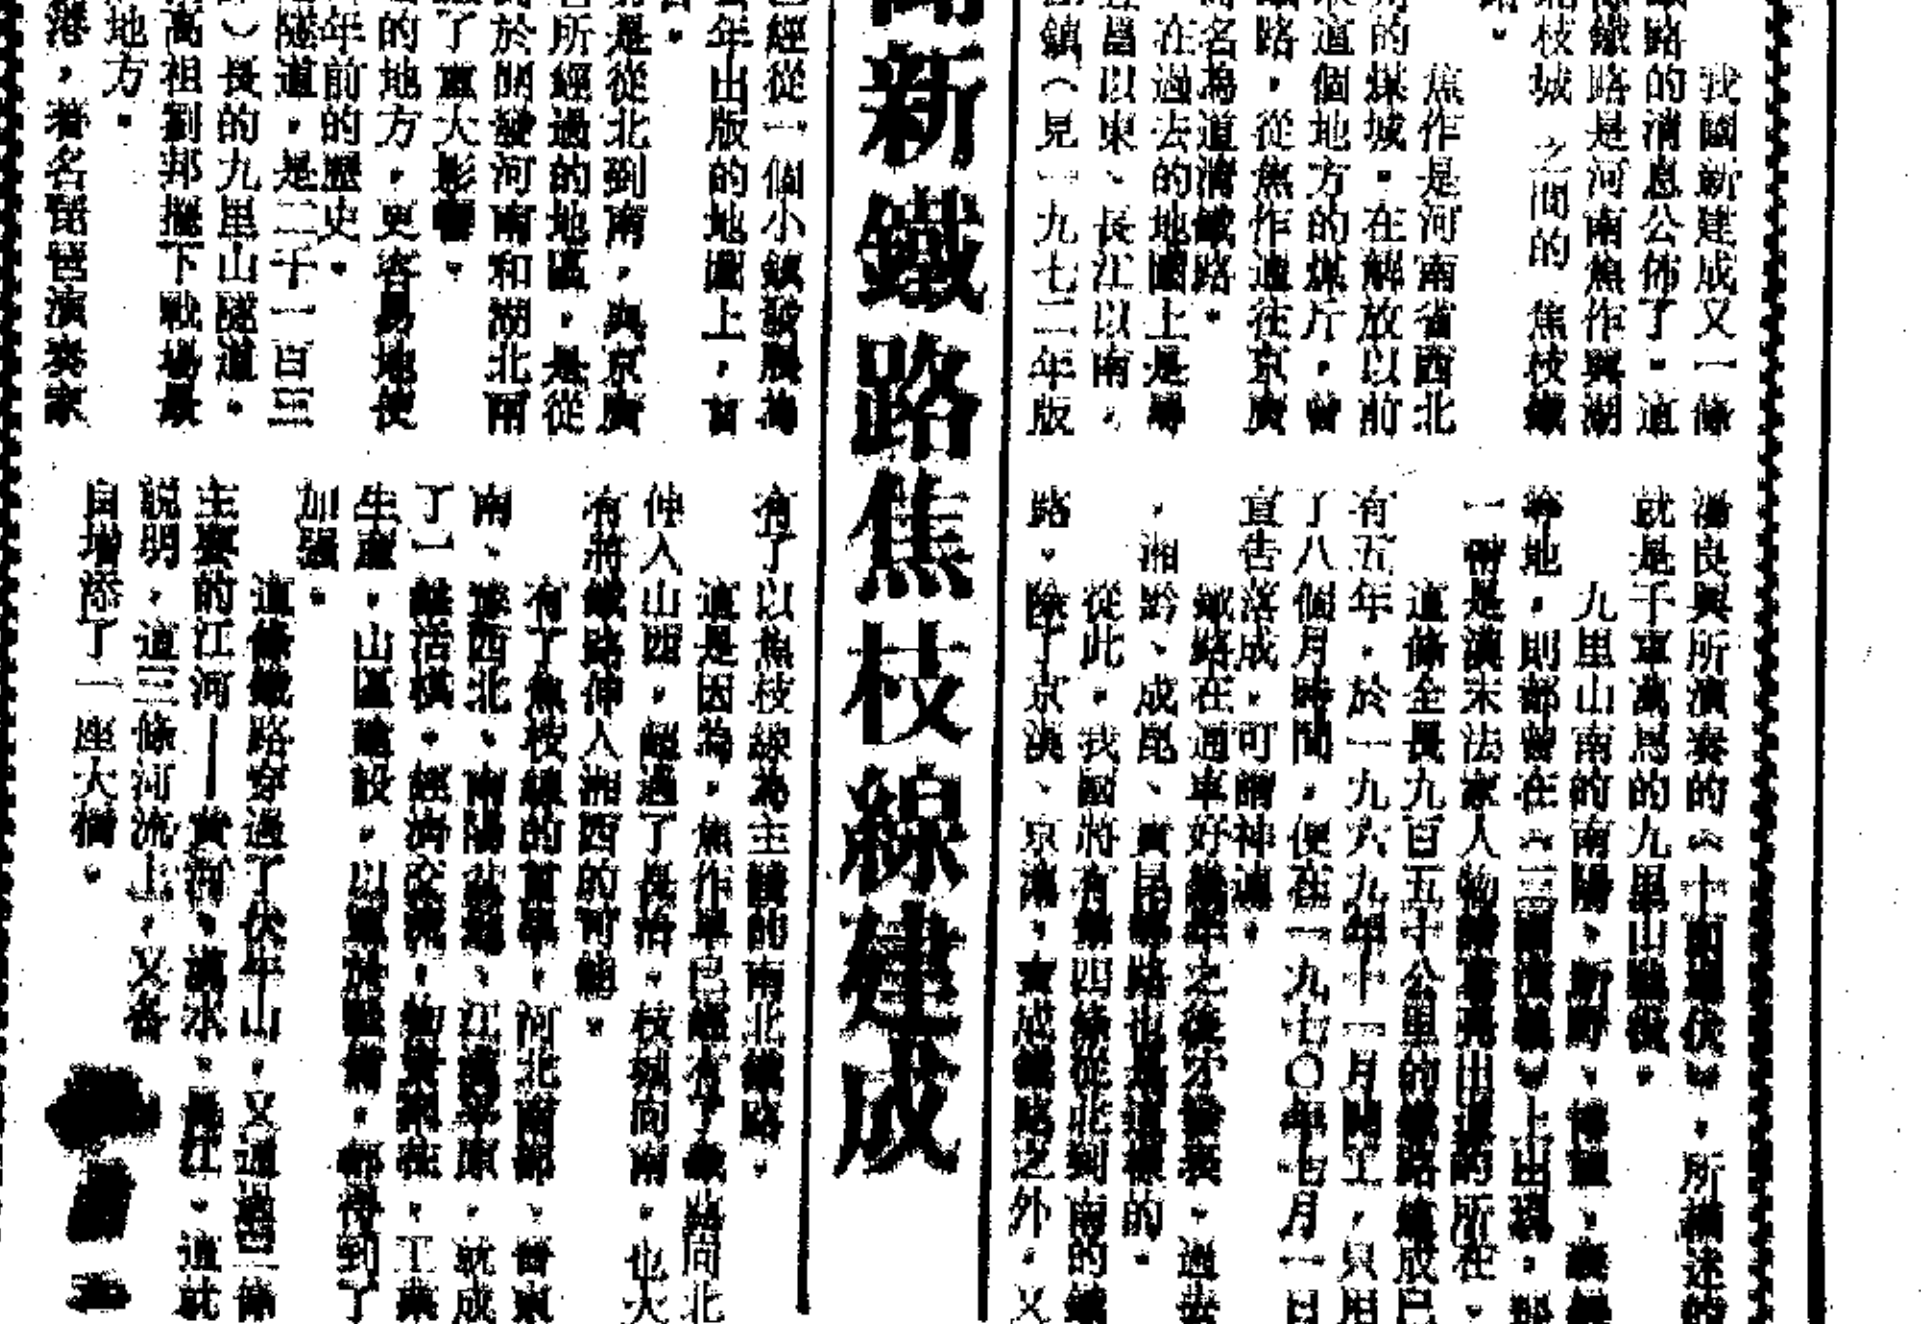 我國新建成又一條
鐵路的消息公佈了。這
條鐵路是河南焦作與湖
北枝城 之間的 焦枝鐵
路。
焦作是河南省西北
的煤城。在解放以前
這個地方的煤斤,曾
路,從焦作通往京廣
名為道清鐵路。
在過去的地圖上是尋
昌以東、長江以南,
鎮(見一九七二年版
新鐵路焦枝線建成
經從一個小鎮發展為
年出版的地圖上,首
是從北到南,與京廣
所經過的地區,是從
於開發河南和湖北兩
了重大影響。
的地方,更容易地使
年前的歷史。
隧道,是二千一百三
)長的九里山隧道。
高祖劉邦擺下戰場最
地方。
港,着名琵琶演奏家
湯良興所演奏的《十面埋伏》,所描述的
就是千軍萬馬的九里山戰役。
九里山南的南陽、新野、樊城、襄
等地,則都曾在《三國演義》上出現,
一帶是漢末法家人物諸葛亮出
所在。
這條全長九百五十公里的鐵路築成已
有五年,於一九六九年十一月開工,只用
了八個月時間,便在一九七〇年七月一日
宣告落成,可謂神速。
鐵路在通車好幾年之後才發表,過去
,湘黔、成昆、貴昆鐵路也是這樣的。
從此,我國將有第四條從北到南的鐵
路,除了京漢、京滬、寶成鐵路之外,又
有了以焦枝線為主體的南北鐵路。
這是因為,焦作早已經有了鐵路向北
伸入山西,經過了長治。枝城向南,也大
有將鐵路伸入湘西的可能。
有了焦枝線的貫串,河北南部、晉東
南、豫西北、南陽盆地、江漢平原,就成
了一盤活棋。經濟交流,物資來往,工業
生產,山區建設,以至於戰備,都得到了
加強。
這條鐵路穿過了伏牛山,又通過三條
主要的江河——黃河、漢水、長江。這就
說明,這三條河流上,又各
自增添了一座大橋。